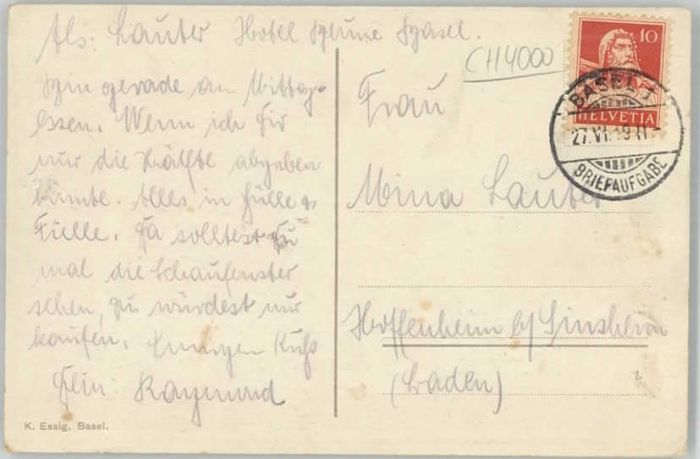 Abs: Lauter Hotel Blume Basel.
CH4000
10
HELVETIA
BASEL 1
27.VI.19 11
BRIEFAUFGABE
Bin gerade am Mittag-
essen. Wenn ich Dir
nur die Hälfte abgeben
könnte. Alles in Hülle &
Fülle. Da solltest Du
mal die Schaufenster
sehen, Du würdest nur
kaufen. Innigen Kuss
Dein Raymund
Frau
Mina Lauter
Hoffenheim b/ Sinsheim
(Baden)
K. Essig, Basel.